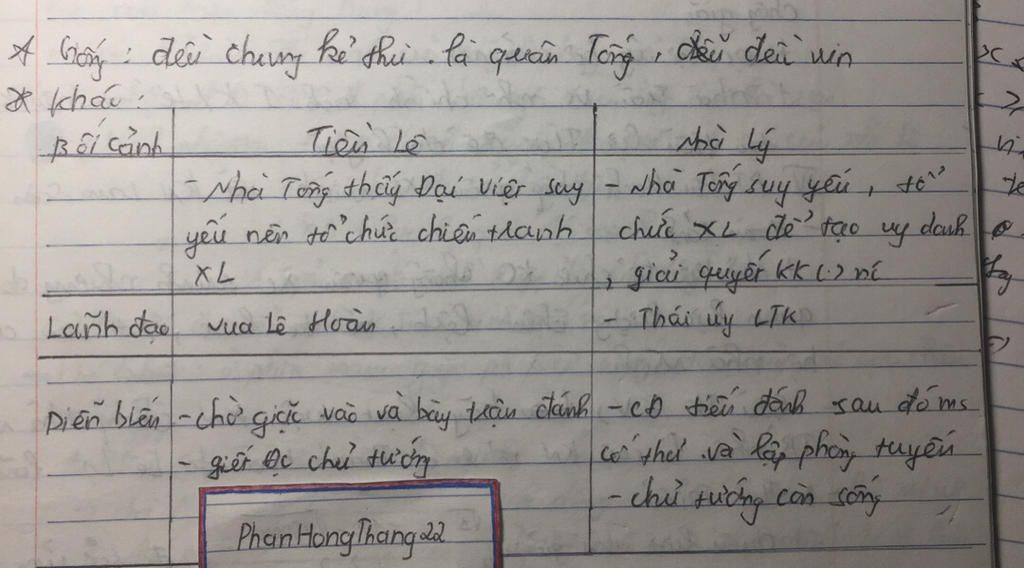 * Giống: đều chung kẻ thù là quân Tống, đều đều win
* Khác:
Bối cảnh
Tiền Lê
Nhà Lý
- Nhà Tống thấy Đại Việt suy
yếu nên tổ chức chiến tranh
XL
- Nhà Tống suy yếu, tổ
chức XL để tạo uy danh
, giải quyết KK (.) nc
Lãnh đạo
vua Lê Hoàn
- Thái úy LTK
Diễn biến
- chờ giặc vào và bày trận đánh
- giết đc chủ tướng
- CĐ tiến đánh sau đó ms
cố thủ và lập phòng tuyến
- chủ tướng còn sống
PhanHongThang22